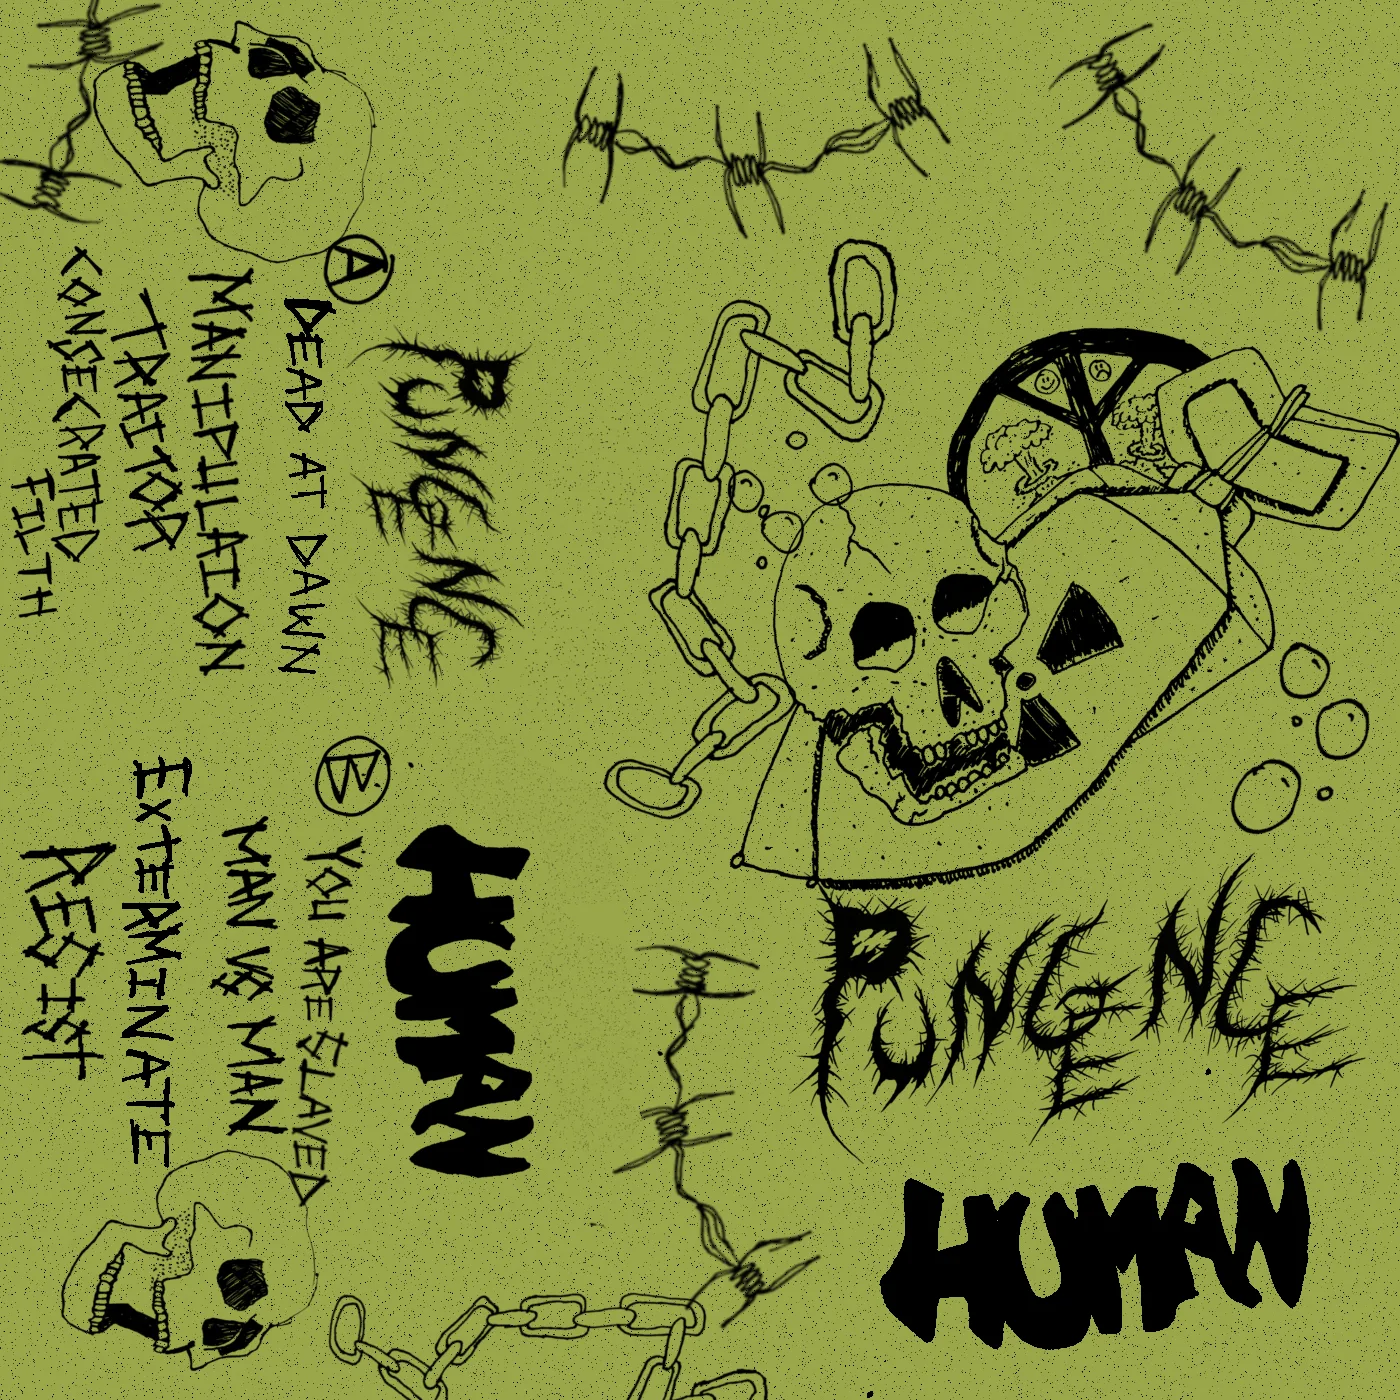 PUNGENCE
A
DEAD AT DAWN
MANIPULATION
TRAITOR
CONSECRATED
FILTH
HUMAN
B
YOU ARE SLAVED
MAN VS MAN
EXTERMINATE
RESIST
PUNGENCE
HUMAN